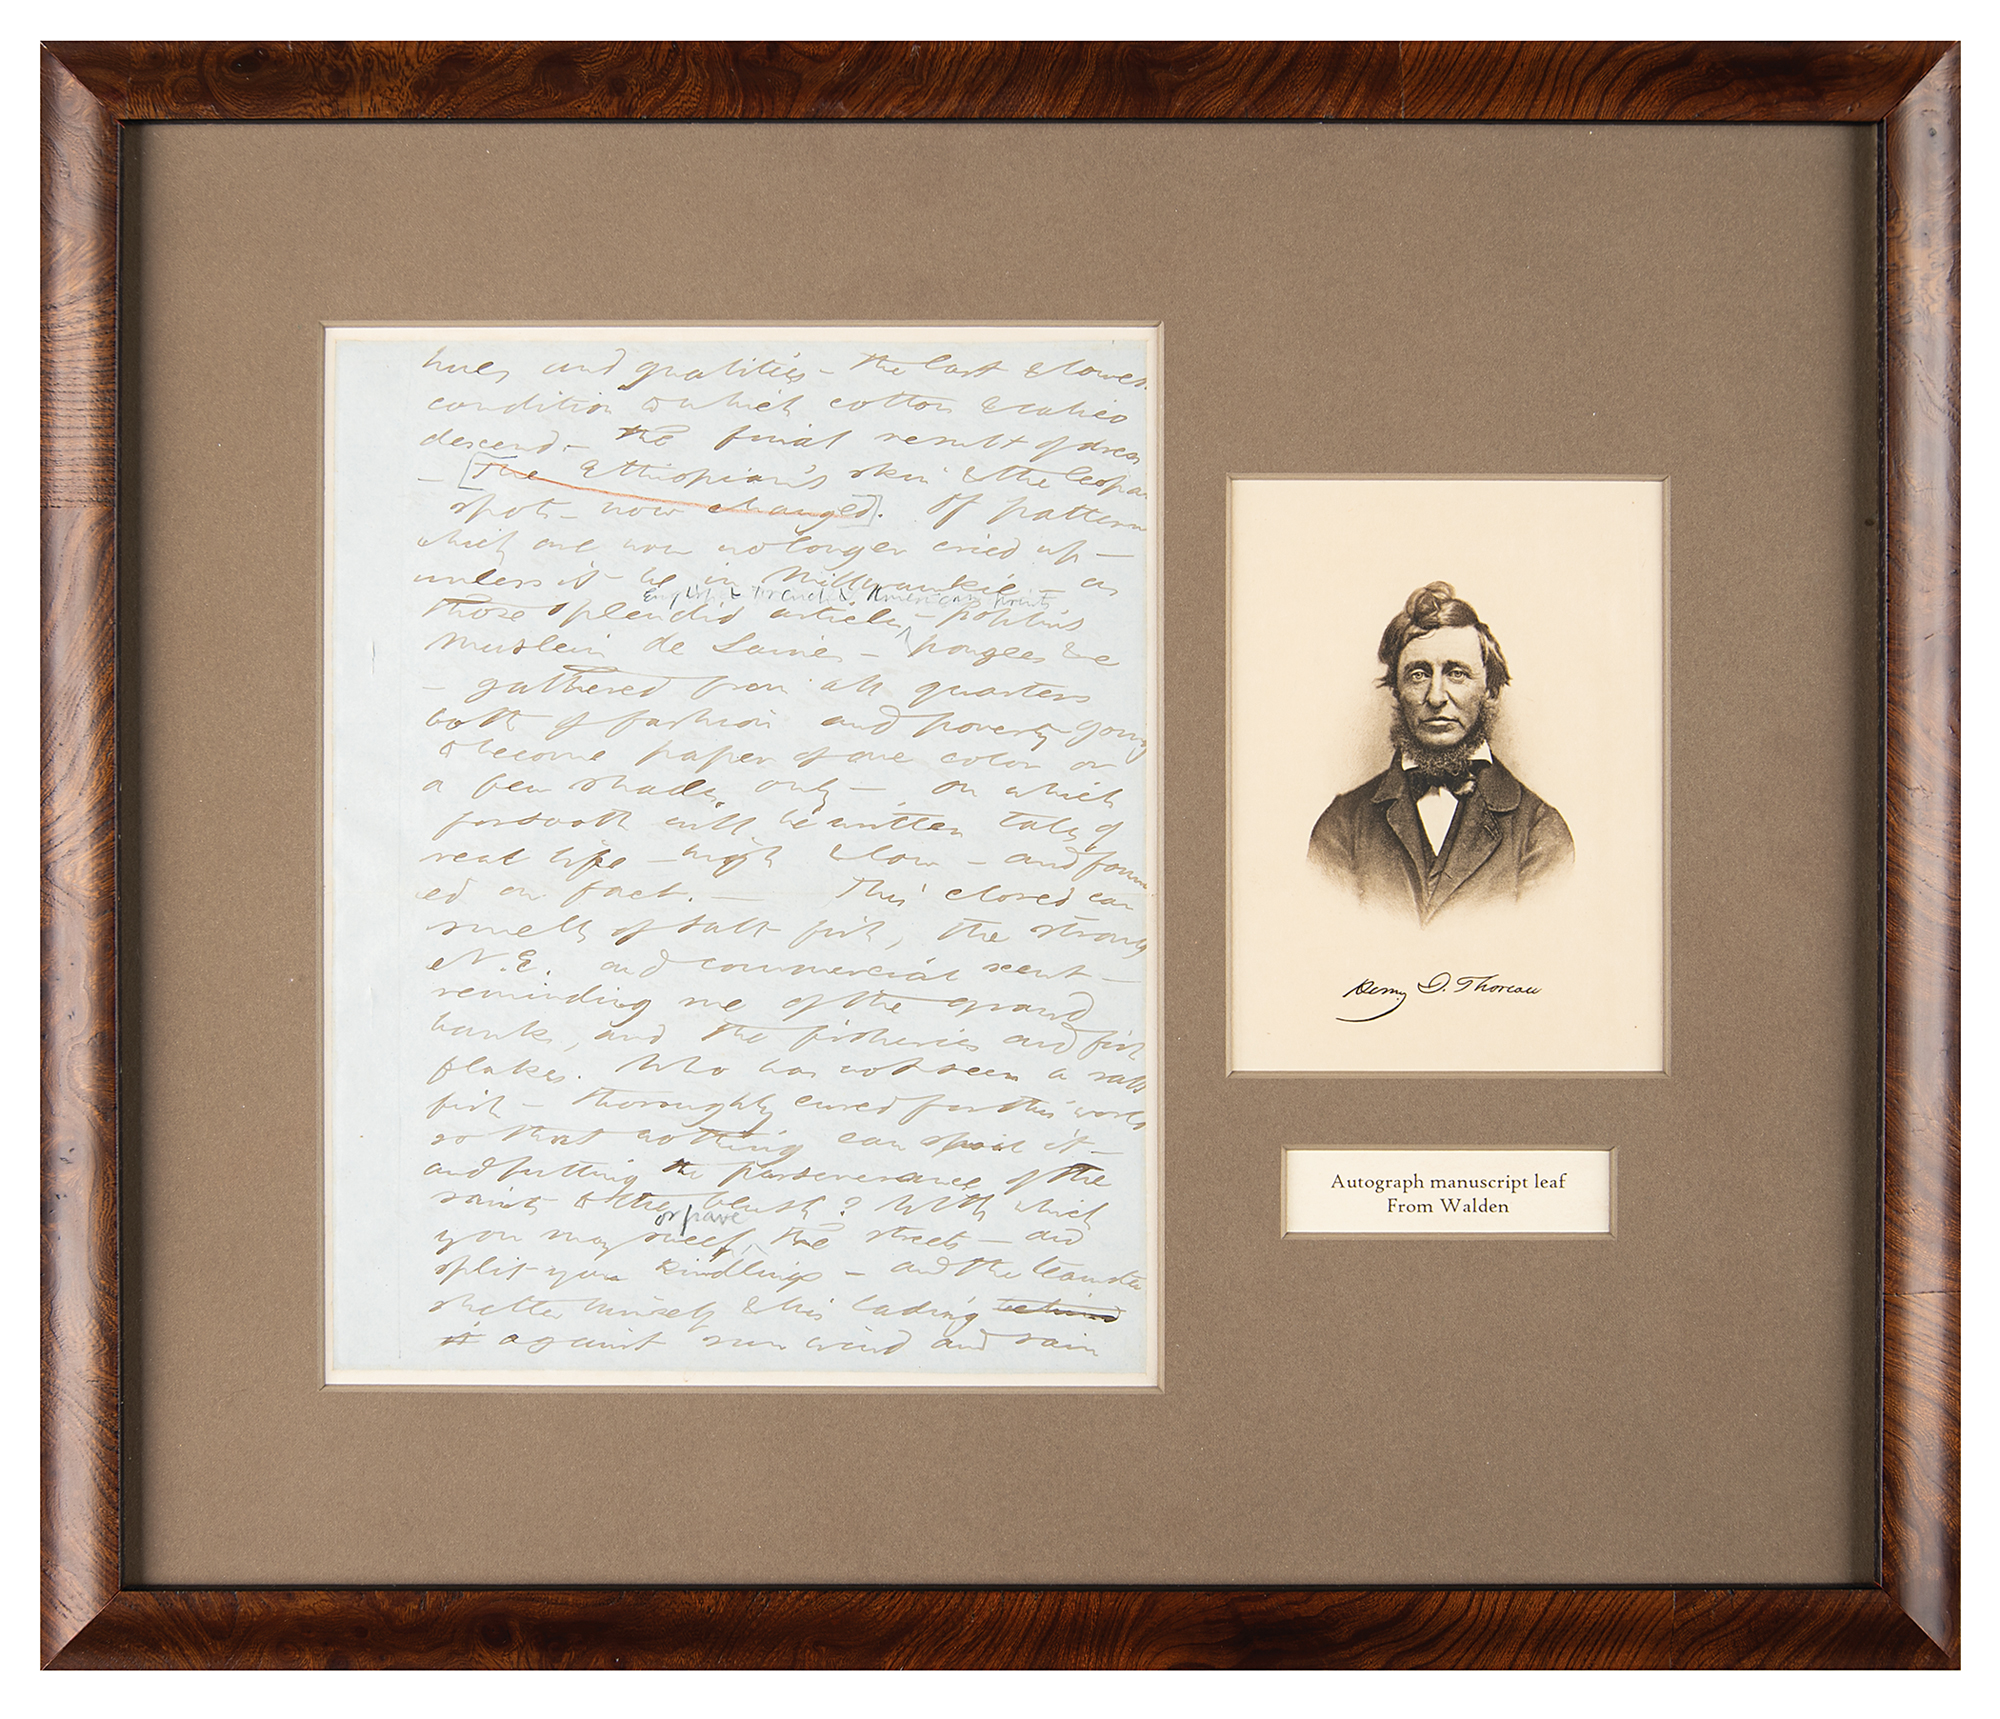 hues and qualities – the last & lowest
condition to which cotton & calico
descend – the final result of dress
– [The Ethiopian's skin & the leopar
spots – now changed]. Of pattern
which are now no longer cried up –
unless it be in Millwaukie – as
English & French & American prints
those splendid articles – poplins
muslein de Laines – pongees &c
– gathered from all quarters
both of fashion and poverty – going
to become paper of one color or
a few shades only – on which
forsooth will be written tales of
real life – high & low – and foun
ed on fact. – This closed car
smells of salt fish, the strong
N.E. and commercial scent –
reminding me of the grand
banks, and the fisheries and fish
flakes. Who has not seen a salt
fish – thoroughly cured for this world
so that nothing can spoil it –
and putting the perserverance of the
saints to the blush? With which
or pave
you may sweep the streets – and
split your kindlings – and the teamster
shelter himself & his lading behind
it against sun wind and rain
Henry D. Thoreau
Autograph manuscript leaf
From Walden